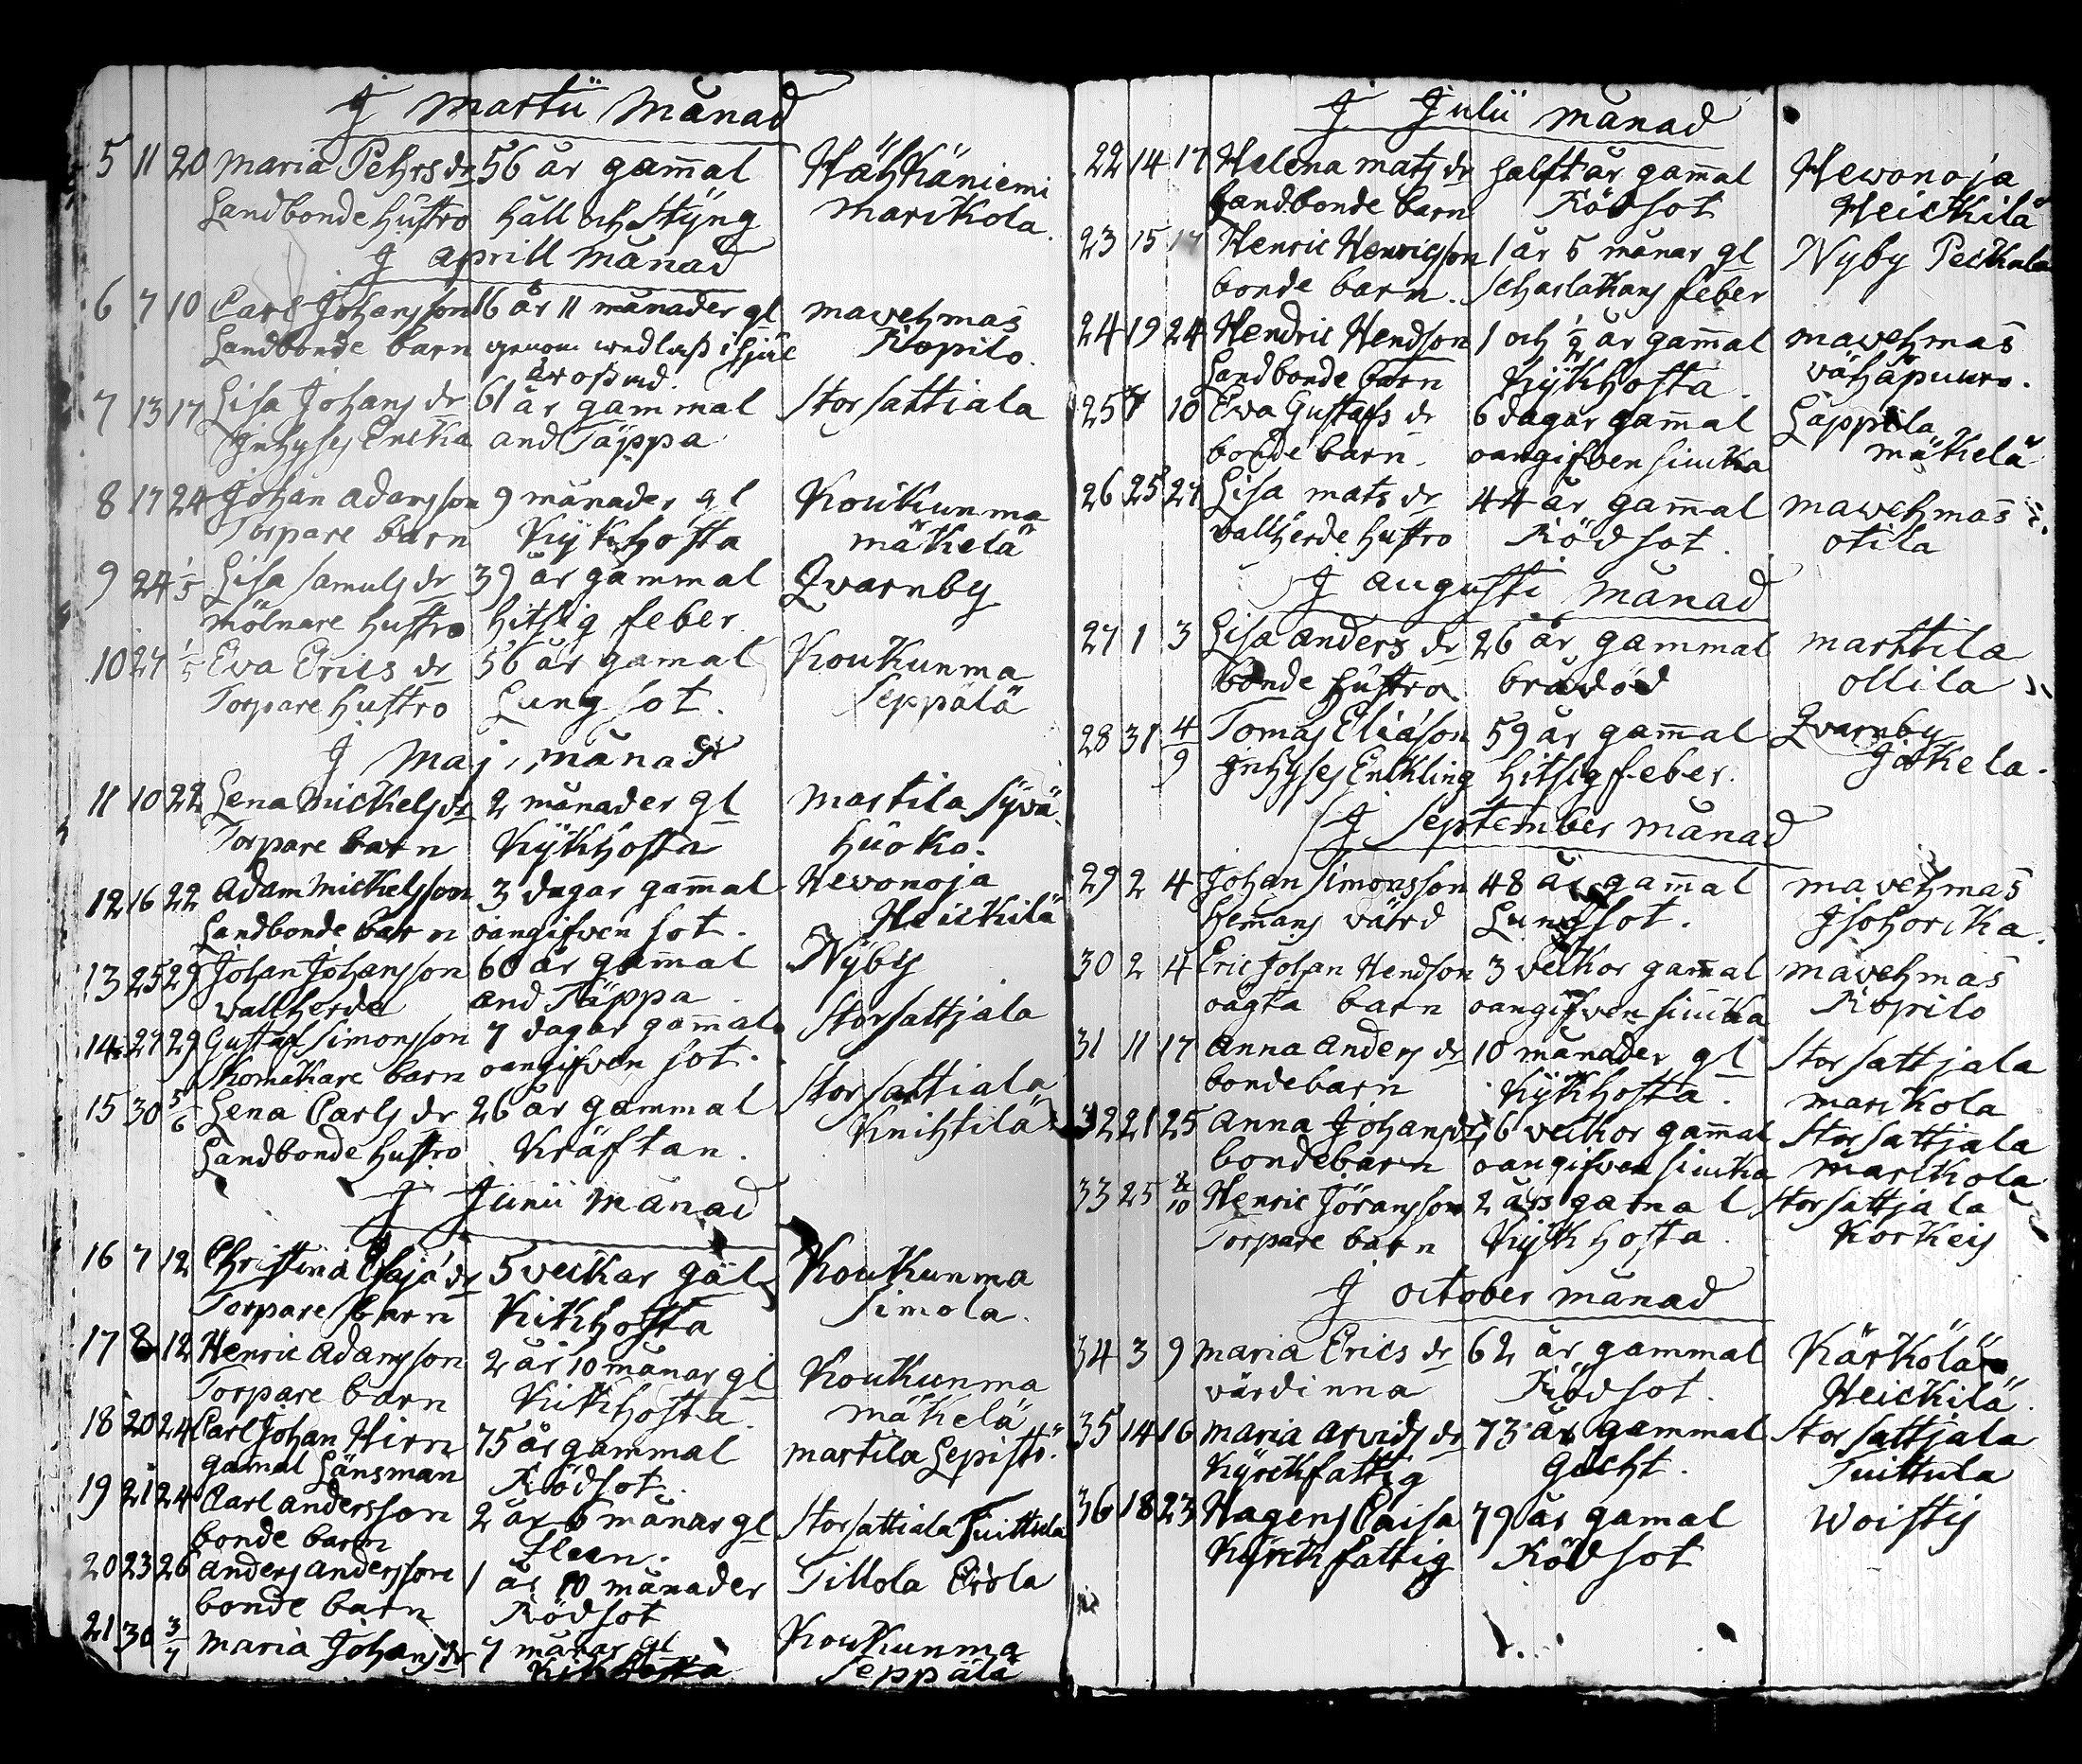 J martii månad
5 11 20 Maria Pehrs dr 56 år gam̄al Hähkäniemi
Landbonde hustro håll och styng marckola.
J aprill månad
6 7 10 Carl Johansson 16 år 11 månader gl mavehmas
Landbonde barn genom wedlass i Kopilo.
7 13 17 Lisa Johans dr 61 år gammal Storsattiala
Jnhyses Encka and Täppa
8 17 24 Johan adamsson 9 månader gl Koukunma
Torpare barn Kykhosta mäkelä
9 24 1/5 Lisa samuls dr 39 år gammal Qvarnby
mölnare hustro hitsig feber
10 27 1/5 Eva Erics dr 56 år gamal Koukunma
Torpare hustro Lungsot. Seppälä
J maj månad
11 10 22 Lena Mickels dr 2 månader gl martila syvä
Torpare barn Kykhosta huoko.
12 16 22 Adam Mickelsson 3 dagar gam̄al Hevonoja
Landbonde barn oangifven sot. Heickilä
13 25 29 Johan Johansson 60 år gam̄al Nyby
wallherde and Täppa
14 27 29 Gustaf Simonsson 7 dagar gam̄al Storsattjala
skomakare barn oangifven sot.
15 30 5/6 Lena Carls dr 26 år gammal Storsattiala
Landbonde hustro Kräftan. Knihtilä
J Junii månad
16 7 12 Christina Esajä dr 5 veckar gäl Koukunma
Torpare barn Kikhosta Simola.
17 8 12 Henric adamsson 2 år 10 månar gl Koukunma
Torpare barn Kikhosta. mäkelä
18 20 24 Carl Johan Hirn 75 år gammal martila Lepistö.
gamal Länsman Rödsot.
19 21 24 Carl andersson 2 år 6 månar gl Storsattiala Tuittula
bonde barn
20 23 26 anders andersson 1 år 10 månader Tillola Erola
bonde barn Rödsot
21 30 3/7 Maria Johans dr 7 månar gl Koukunma
Kikhosta Seppälä
J Julii månad
22 14 17 Helena mats dr halft år gam̄al Hewonoja
Landbonde barn Rödsot Heickilä
23 15 17 Henric Henricsson 1 år 5 månar gl Nyby Peckala
bonde barn. scharlakans feber
24 19 24 Hendric Hendson 1 och ½ år gam̄al mavehmas
Landbonde barn Kykhosta. vähäpuuro.
25 7 10 Eva Gustafs dr 6 dagar gam̄al Läppila
bonde barn. oangifven siucka mäkelä
26 25 27 Lisa mats dr 44 år gam̄al mavehmas
wallherde hustro Rödsot. otila
J augusti månad
27 1 3 Lisa anders dr 26 år gammal marttila
bonde hustro. brådöd ollila
28 31 4/9 Tomas Eliasson 59 år gam̄al Qvarnby
Jnhyses Enckling hitsig feber. Jokela.
J September månad
29 2 4 Johan Simonsson 48 år gam̄al mavehmas
Hemans värd Lungsot. Jsohorcka.
30 2 4 Eric Johan Hendson 3 veckor gam̄al mavehmas
oägta barn oangifven siucka Kopilo
31 11 17 Anna Anders dr 10 månader gl Storsattjala
bondebarn Kykhosta. marckola
32 21 25 Anna Johans dr 6 veckor gam̄al Storsattjala
bondebarn oangifven siucka marckola
33 25 2/10 Henric Jöransson 2 års gamal Storsattjala
Torpare barn Kykhosta. Korkeis
J october månad
34 3 9 Maria Erics dr 62 år gammal Kärkölä
värdinna Rödsot. Heickilä.
35 14 16 Maria Arvids dr 73 år gammal Storsattjala
Kyrckfattig Gicht. Tuittula
36 18 23 Hagens Caisa 79 år gamal Woistis
Kyrckfattig Rödsot